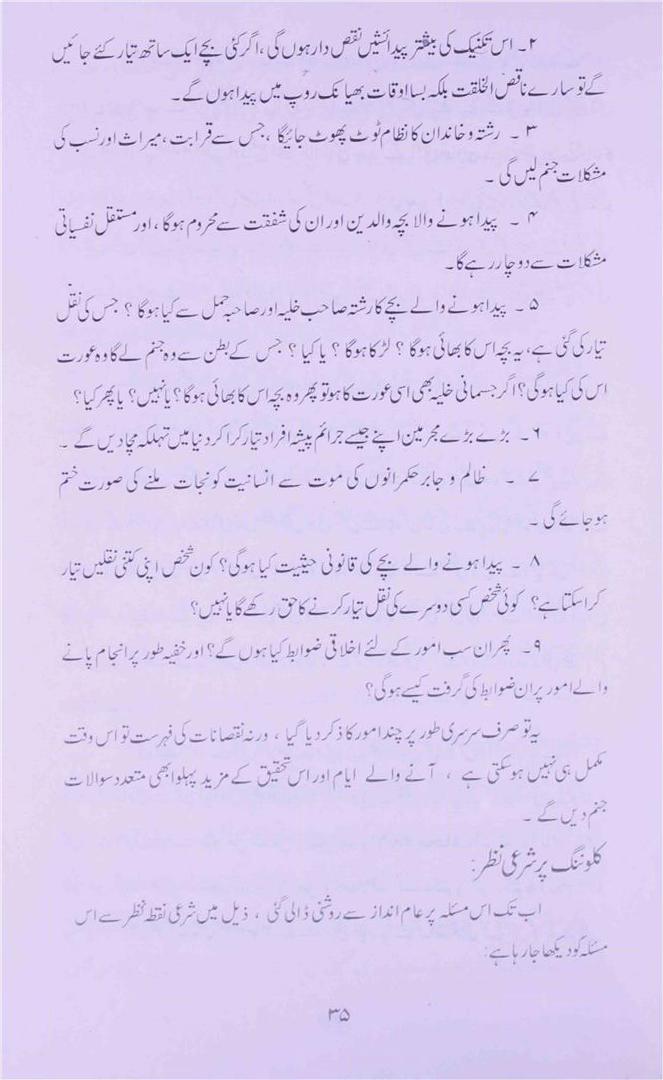 ۲۔ اس تکنیک کی بیشتر پیدائشیں نقص دار ہوں گی، اگر کئی بچے ایک ساتھ تیار کئے جائیں
گے تو سارے ناقص الخلقت بلکہ بسا اوقات بھیانک روپ میں پیدا ہوں گے۔
۳ ۔ رشتہ و خاندان کا نظام ٹوٹ پھوٹ جائیگا، جس سے قرابت، میراث اور نسب کی
مشکلات جنم لیں گی ۔
۴ ۔ پیدا ہونے والا بچہ والدین اور ان کی شفقت سے محروم ہوگا، اور مستقل نفسیاتی
مشکلات سے دوچار رہے گا۔
۵ ۔ پیدا ہونے والے بچے کا رشتہ صاحب خلیہ اور صاحبہ حمل سے کیا ہوگا ؟ جس کی نقل
تیار کی گئی ہے، یہ بچہ اس کا بھائی ہوگا ؟ لڑکا ہوگا ؟ یا کیا ؟ جس کے بطن سے وہ جنم لے گا وہ عورت
اس کی کیا ہوگی؟ اگر جسمانی خلیہ بھی اسی عورت کا ہو تو پھر وہ بچہ اس کا بھائی ہوگا؟ یا نہیں؟ یا پھر کیا؟
۶ ۔ بڑے بڑے مجرمین اپنے جیسے جرائم پیشہ افراد تیار کرا کر دنیا میں تہلکہ مچا دیں گے ۔
۷ ۔ ظالم و جابر حکمرانوں کی موت سے انسانیت کو نجات ملنے کی صورت ختم
ہو جائے گی ۔
۸ ۔ پیدا ہونے والے بچے کی قانونی حیثیت کیا ہوگی؟ کون شخص اپنی کتنی نقلیں تیار
کرا سکتا ہے؟ کوئی شخص کسی دوسرے کی نقل تیار کرنے کا حق رکھے گا یا نہیں؟
۹۔ پھر ان سب امور کے لئے اخلاقی ضوابط کیا ہوں گے؟ اور خفیہ طور پر انجام پانے
والے امور پر ان ضوابط کی گرفت کیسے ہوگی؟
یہ تو صرف سرسری طور پر چند امور کا ذکر دیا گیا ، ورنہ نقصانات کی فہرست تو اس وقت
مکمل ہی نہیں ہو سکتی ہے ، آنے والے ایام اور اس تحقیق کے مزید پہلو ابھی متعدد سوالات
جنم دیں گے ۔
کلوننگ پر شرعی نظر:
اب تک اس مسئلہ پر عام انداز سے روشنی ڈالی گئی ، ذیل میں شرعی نقطہ نظر سے اس
مسئلہ کو دیکھا جا رہا ہے:
۳۵